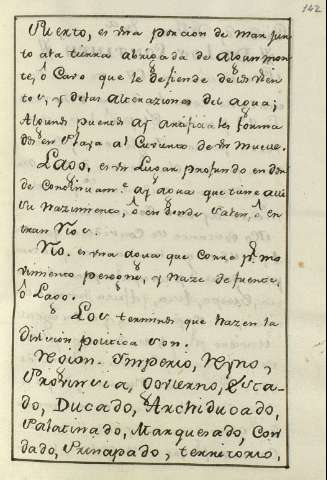 142
Puerto, es una porcion de mar junto
ala tierra abrigada de algun mon
te, ô Cavo que le defiende de los vien
tos, y delas alteraziones del agua;
Algunos puertos ay artificiales forma
dos en Playa al Cubierto de un Muelle.
Lago, es un Lugar profundo en don
de Continuam.e ay agua que tiene alli
su nazimiento, ô en donde salen, ô en
tran Rios.
Rio. es una agua que corre pr. mo
vimiento perenne, y naze de fuente,
ô Lago.
Los terminos que hazen la
Division politica son.
Region. Imperio, Reyno,
Provincia, Govierno, Esta-
do, Ducado, Archiducado,
Palatinado, Marquesado, Con
dado, Prinapado, territorio,